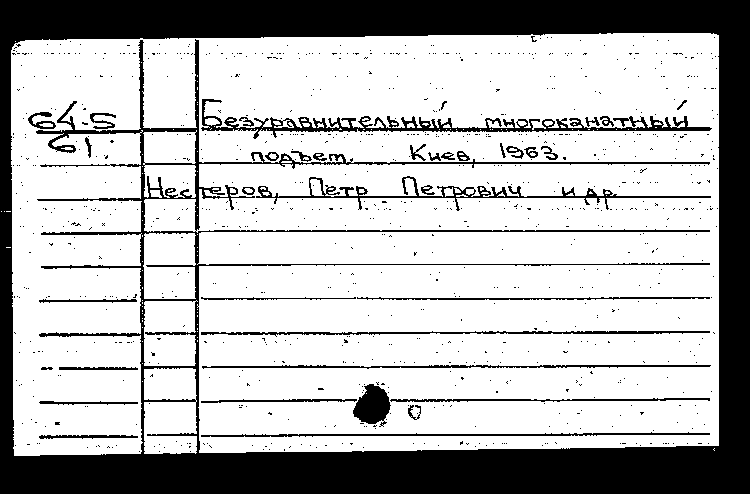 64:5
61.
Безуравнительный многоканатный
подъем. Киев, 1963.
Нестеров, Петр Петрович и др